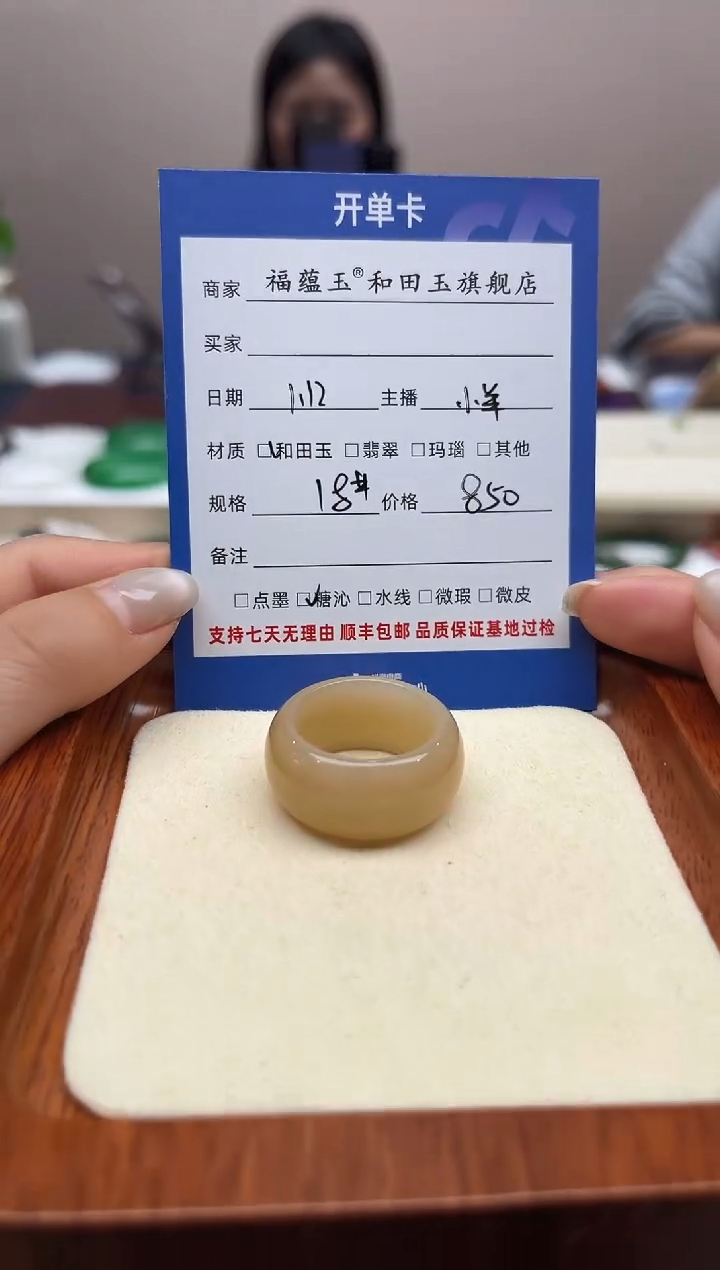 开单卡
商家 福蕴玉®和田玉旗舰店
买家
日期 1.12 主播 小羊
材质 ☑和田玉 □翡翠 □玛瑙 □其他
规格 18# 价格 850
备注
□点墨 ☑糖沁 □水线 □微瑕 □微皮
支持七天无理由 顺丰包邮 品质保证基地过检